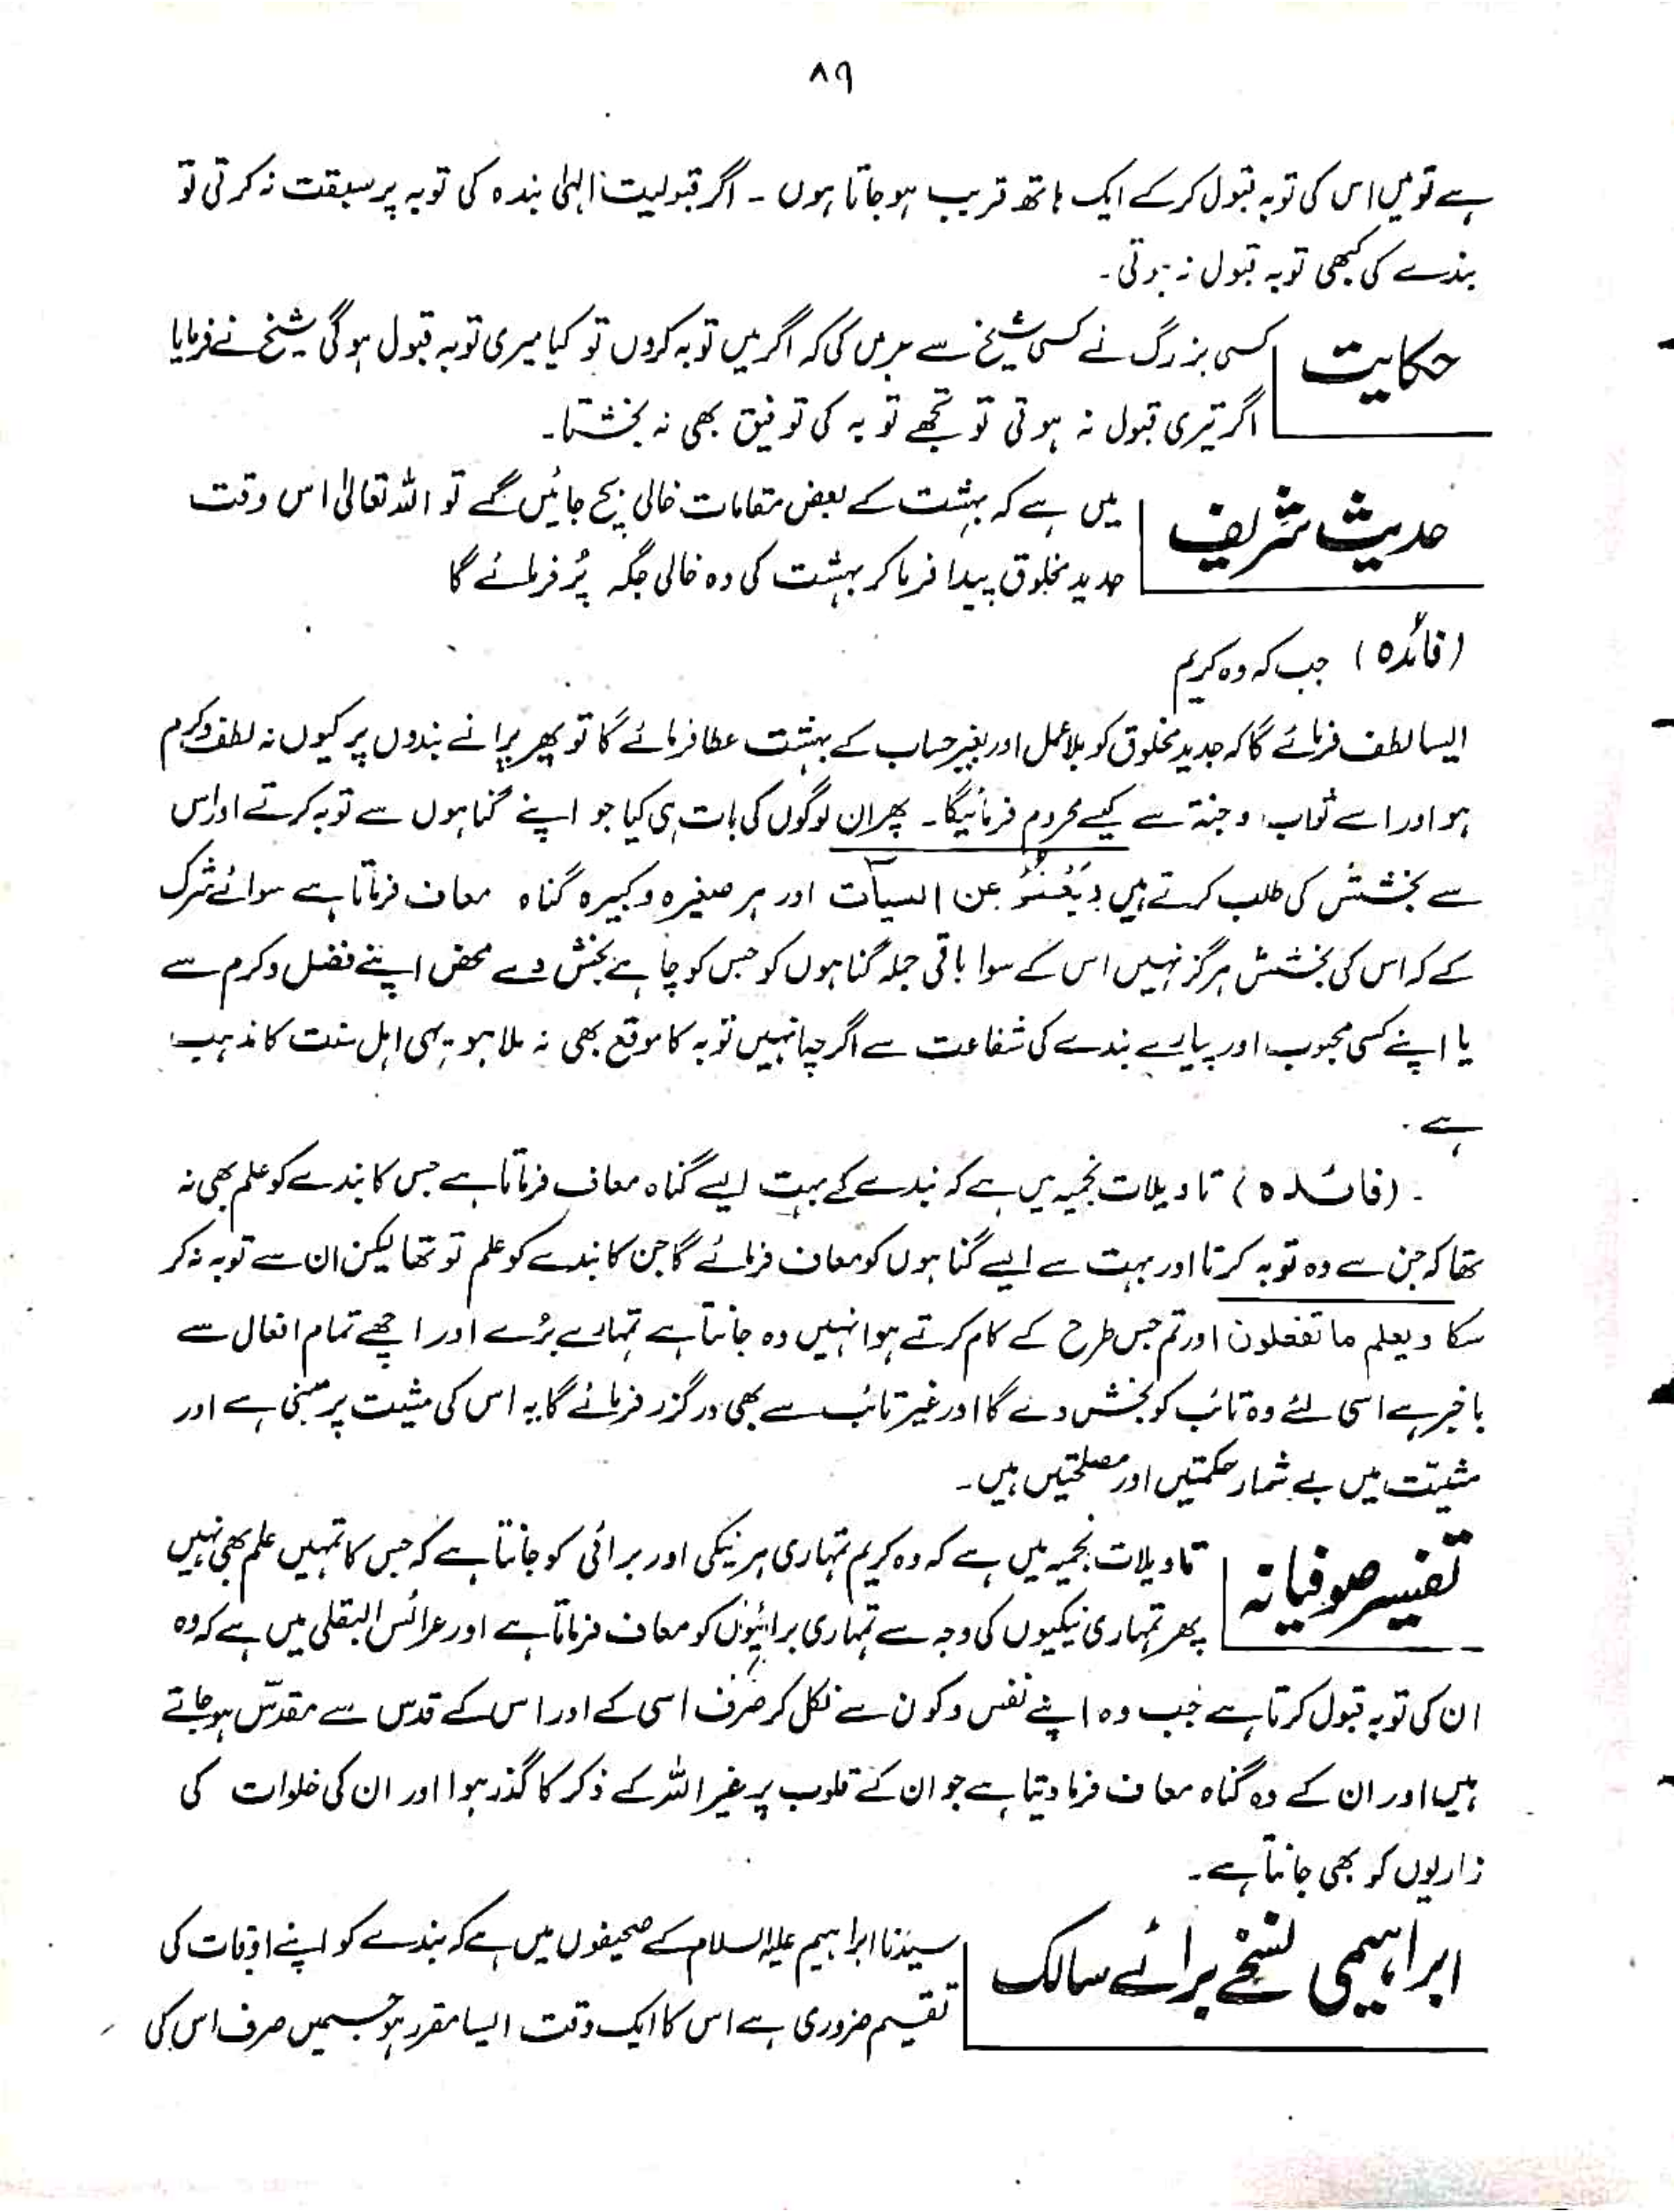 ۸۹
ہے تو میں اس کی توبہ قبول کرکے ایک ہاتھ قریب ہو جاتا ہوں ۔ اگر قبولیت الہٰی بندہ کی توبہ پر سبقت نہ کرتی تو
بندے کی کبھی توبہ قبول نہ ہوتی۔
حکایت
کسی بزرگ نے کسی شیخ سے عرض کی کہ اگر میں توبہ کروں تو کیا میری توبہ قبول ہوگی شیخ نے فرمایا
اگر تیری قبول نہ ہوتی تو تجھے توبہ کی توفیق بھی نہ بخشتا۔
حدیث شریف
میں ہے کہ بہشت کے بعض مقامات خالی بچ جائیں گے تو اللہ تعالیٰ اس وقت
جدید مخلوق پیدا فرما کر بہشت کی وہ خالی جگہ پُر فرمائے گا
(فائدہ) جب کہ وہ کریم
ایسا لطف فرمائے گا کہ جدید مخلوق کو بلا عمل اور بغیر حساب کے بہشت عطا فرمائے گا تو پھر پرانے بندوں پر کیوں نہ لطف و کرم
ہو اور اسے ثواب و جنۃ سے کیسے محروم فرمائیگا۔ پھر ان لوگوں کی بات ہی کیا جو اپنے گناہوں سے توبہ کرتے اور اس
سے بخشش کی طلب کرتے ہیں وَیَعْفُوْ عن السیآت اور ہر صغیرہ و کبیرہ گناہ معاف فرماتا ہے سوائے شرک
کے کہ اس کی بخشش ہرگز نہیں اس کے سوا باقی جملہ گناہوں کو جس کو چاہے بخش دے محض اپنے فضل و کرم سے
یا اپنے کسی محبوب اور پیارے بندے کی شفاعت سے اگرچہ انہیں توبہ کا موقع بھی نہ ملا ہو یہی اہل سنت کا مذہب
ہے ۔
۔ (فائدہ) تاویلات نجمیہ میں ہے کہ بندے کے بہت ایسے گناہ معاف فرماتا ہے جس کا بندے کو علم بھی نہ
تھا کہ جن سے وہ توبہ کرتا اور بہت سے ایسے گناہوں کو معاف فرمائے گا جن کا بندے کو علم تو تھا لیکن ان سے توبہ نہ کر
سکا ویعلم ما تفعلون اور تم جس طرح کے کام کرتے ہو انہیں وہ جانتا ہے تمہارے بُرے اور اچھے تمام افعال سے
باخبر ہے اسی لئے وہ تائب کو بخش دے گا اور غیر تائب سے بھی درگزر فرمائے گا یہ اس کی مشیت پر مبنی ہے اور
مشیّت میں بے شمار حکمتیں اور مصلحتیں ہیں۔
تفسیر صوفیانہ
تاویلات نجمیہ میں ہے کہ وہ کریم تمہاری ہر نیکی اور برائی کو جانتا ہے کہ جس کا تمہیں علم بھی نہیں
پھر تمہاری نیکیوں کی وجہ سے تمہاری برائیوں کو معاف فرماتا ہے اور عرائس البقلی میں ہے کہ وہ
ان کی توبہ قبول کرتا ہے جب وہ اپنے نفس و کون سے نکل کر صرف اسی کے اور اس کے قدس سے مقدّس ہوجاتے
ہیں اور ان کے وہ گناہ معاف فرما دیتا ہے جو ان کے قلوب پر غیر اللہ کے ذکر کا گذر ہوا اور ان کی خلوات کی
زاریوں کو بھی جانتا ہے۔
ابراہیمی نسخے برائے سالک
سیدنا ابراہیم علیہ السلام کے صحیفوں میں ہے کہ بندے کو اپنے اوقات کی
تقسیم ضروری ہے اس کا ایک وقت ایسا مقرر ہو جسمیں صرف اس کی